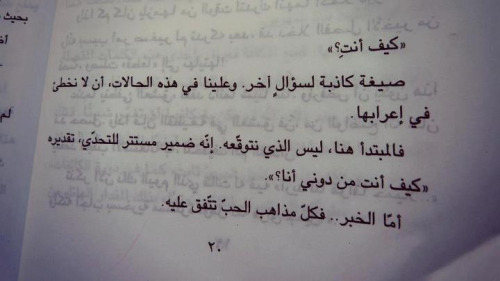 بحيث
«كيف أنتِ؟»
صيغة كاذبة لسؤالٍ آخر. وعلينا في هذه الحالات، أن لا نخطئ
في إعرابها.
فالمبتدأ هنا، ليس الذي نتوقّعه. إنّه ضمير مستتر للتحدّي، تقديره
«كيف أنت من دوني أنا؟».
أمّا الخبر.. فكلّ مذاهب الحبّ تتّفق عليه.
٢٠